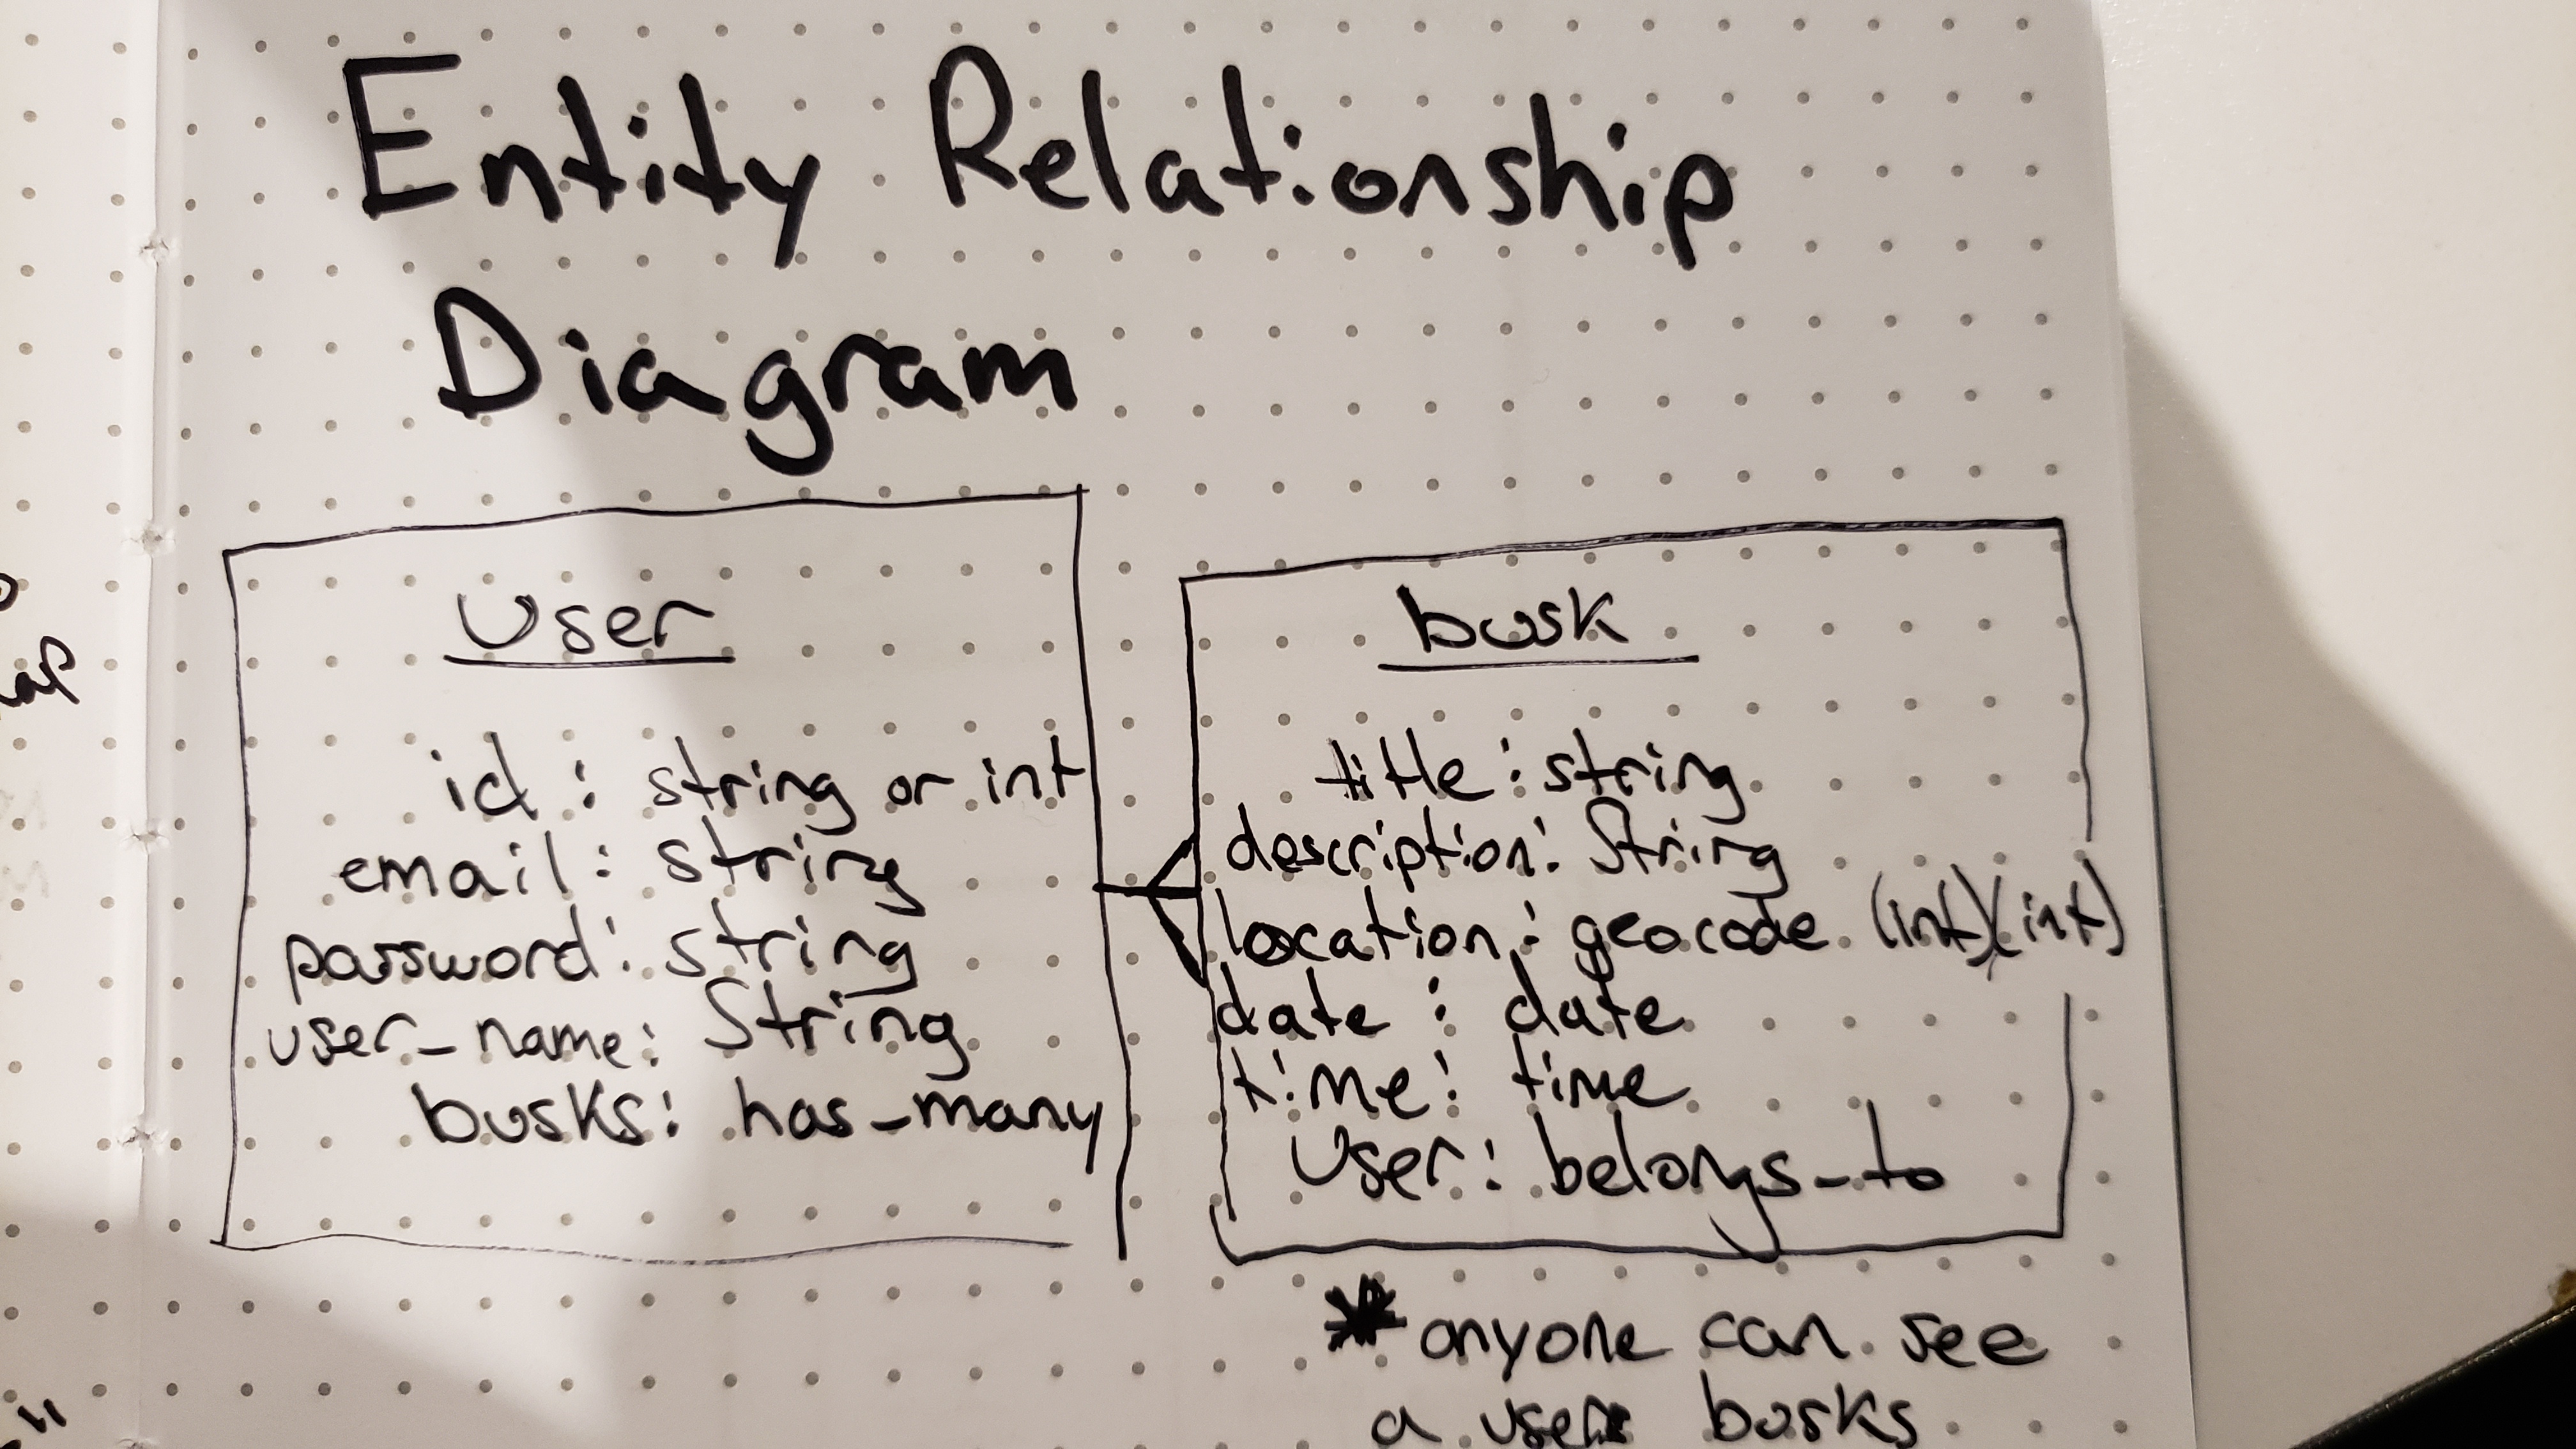 Entity Relationship
Diagram
User
id : string or int
email: string
password: string
user_name: String
busks: has_many
busk
title: string
description: String
location: geocode (int)(int)
date : date
time: time
User: belongs_to
* anyone can see
a users busks